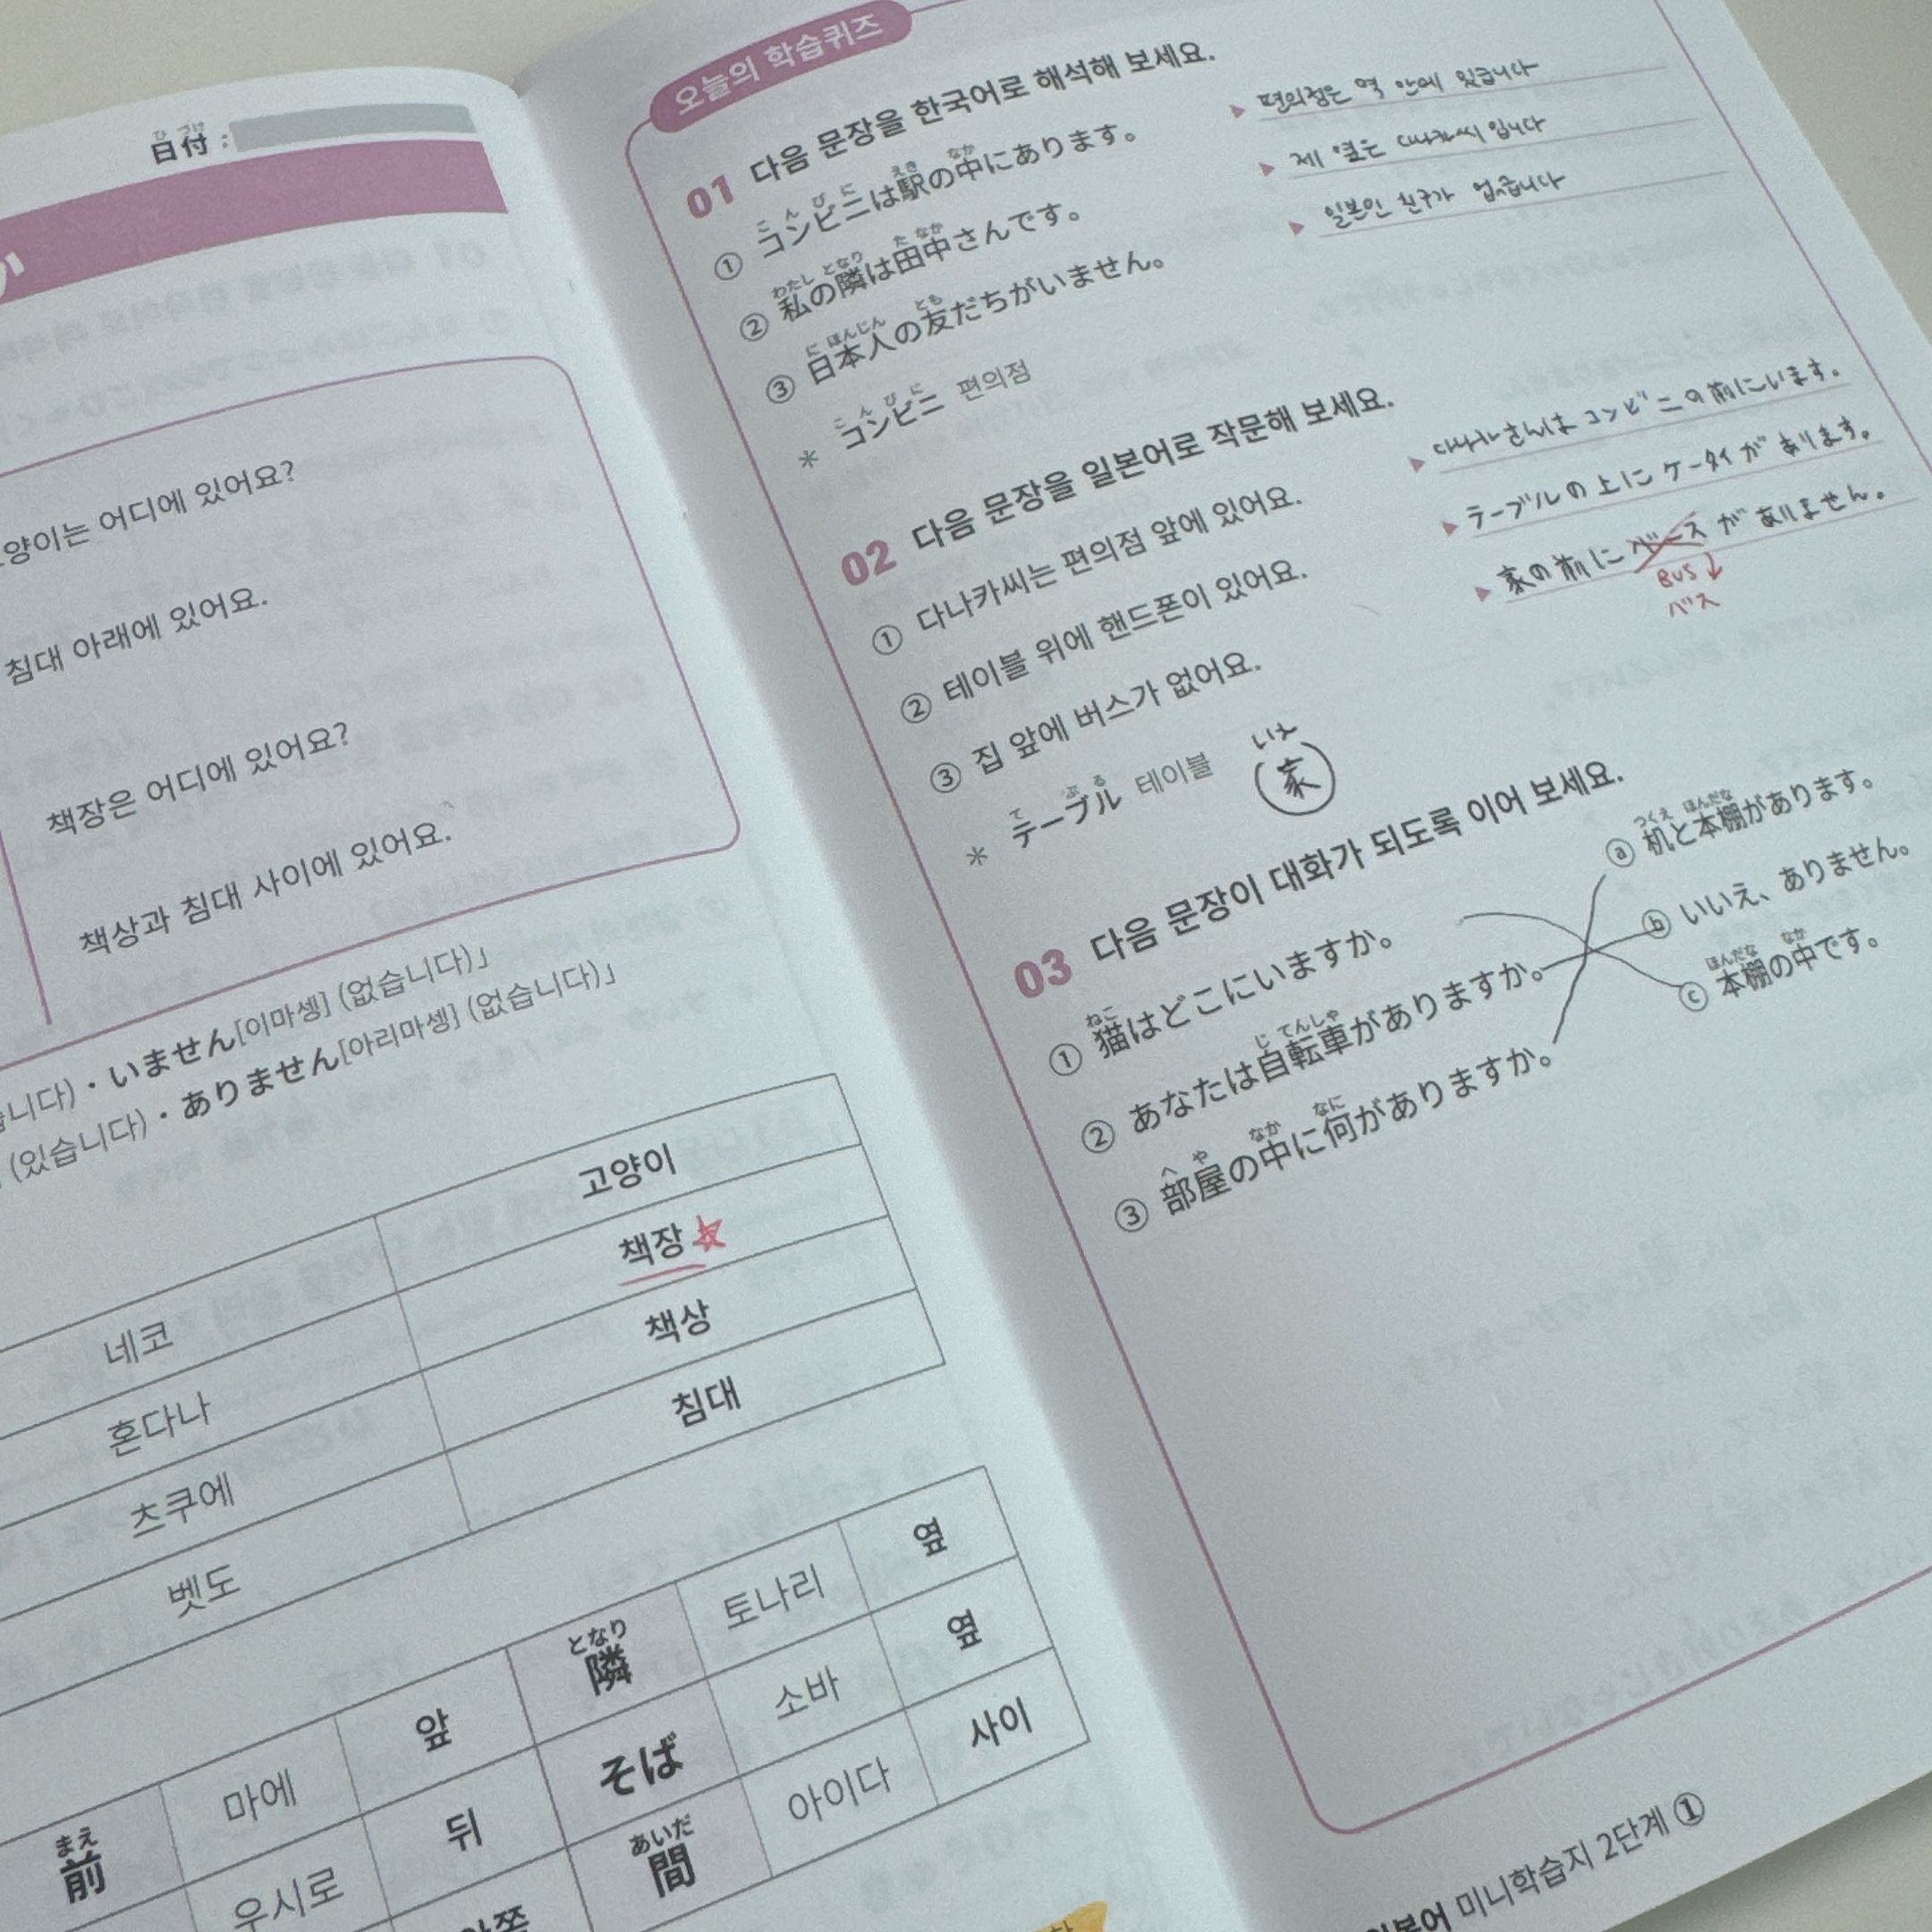 日付 :
ひ づけ
양이는 어디에 있어요?
침대 아래에 있어요.
책장은 어디에 있어요?
책상과 침대 사이에 있어요.
습니다)・いません[이마셍] (없습니다)」
(있습니다)・ありません[아리마셍] (없습니다)」
고양이
네코 책장
혼다나 책상
츠쿠에 침대
벳도
前 마에 앞 隣 토나리 옆
まえ となり
우시로 뒤 そば 소바 옆
間 아이다 사이
あいだ
오늘의 학습퀴즈
01 다음 문장을 한국어로 해석해 보세요.
こ ん び に えき なか
① コンビニは駅の中にあります。 ▶ 편의점은 역 안에 있습니다
わたし となり た なか
② 私の隣は田中さんです。 ▶ 제 옆은 다나카씨 입니다
に ほんじん とも
③ 日本人の友だちがいません。 ▶ 일본인 친구가 없습니다
こ ん び に
* コンビニ 편의점
02 다음 문장을 일본어로 작문해 보세요.
① 다나카씨는 편의점 앞에 있어요. ▶ さんは コンビニの前にいます。
② 테이블 위에 핸드폰이 있어요. ▶ テーブルの上に ケータイが あります。
③ 집 앞에 버스가 없어요. ▶ 家の前に が ありません。
BUS
バス
て ぶ る
* テーブル 테이블
いえ
家
03 다음 문장이 대화가 되도록 이어 보세요.
ねこ
① 猫はどこにいますか。
じ てんしゃ
② あなたは自転車がありますか。
へ や なか なに
③ 部屋の中に何がありますか。
つくえ ほんだな
ⓐ 机と本棚があります。
ⓑ いいえ、ありません。
ほんだな なか
ⓒ 本棚の中です。
미니학습지 2단계 ①